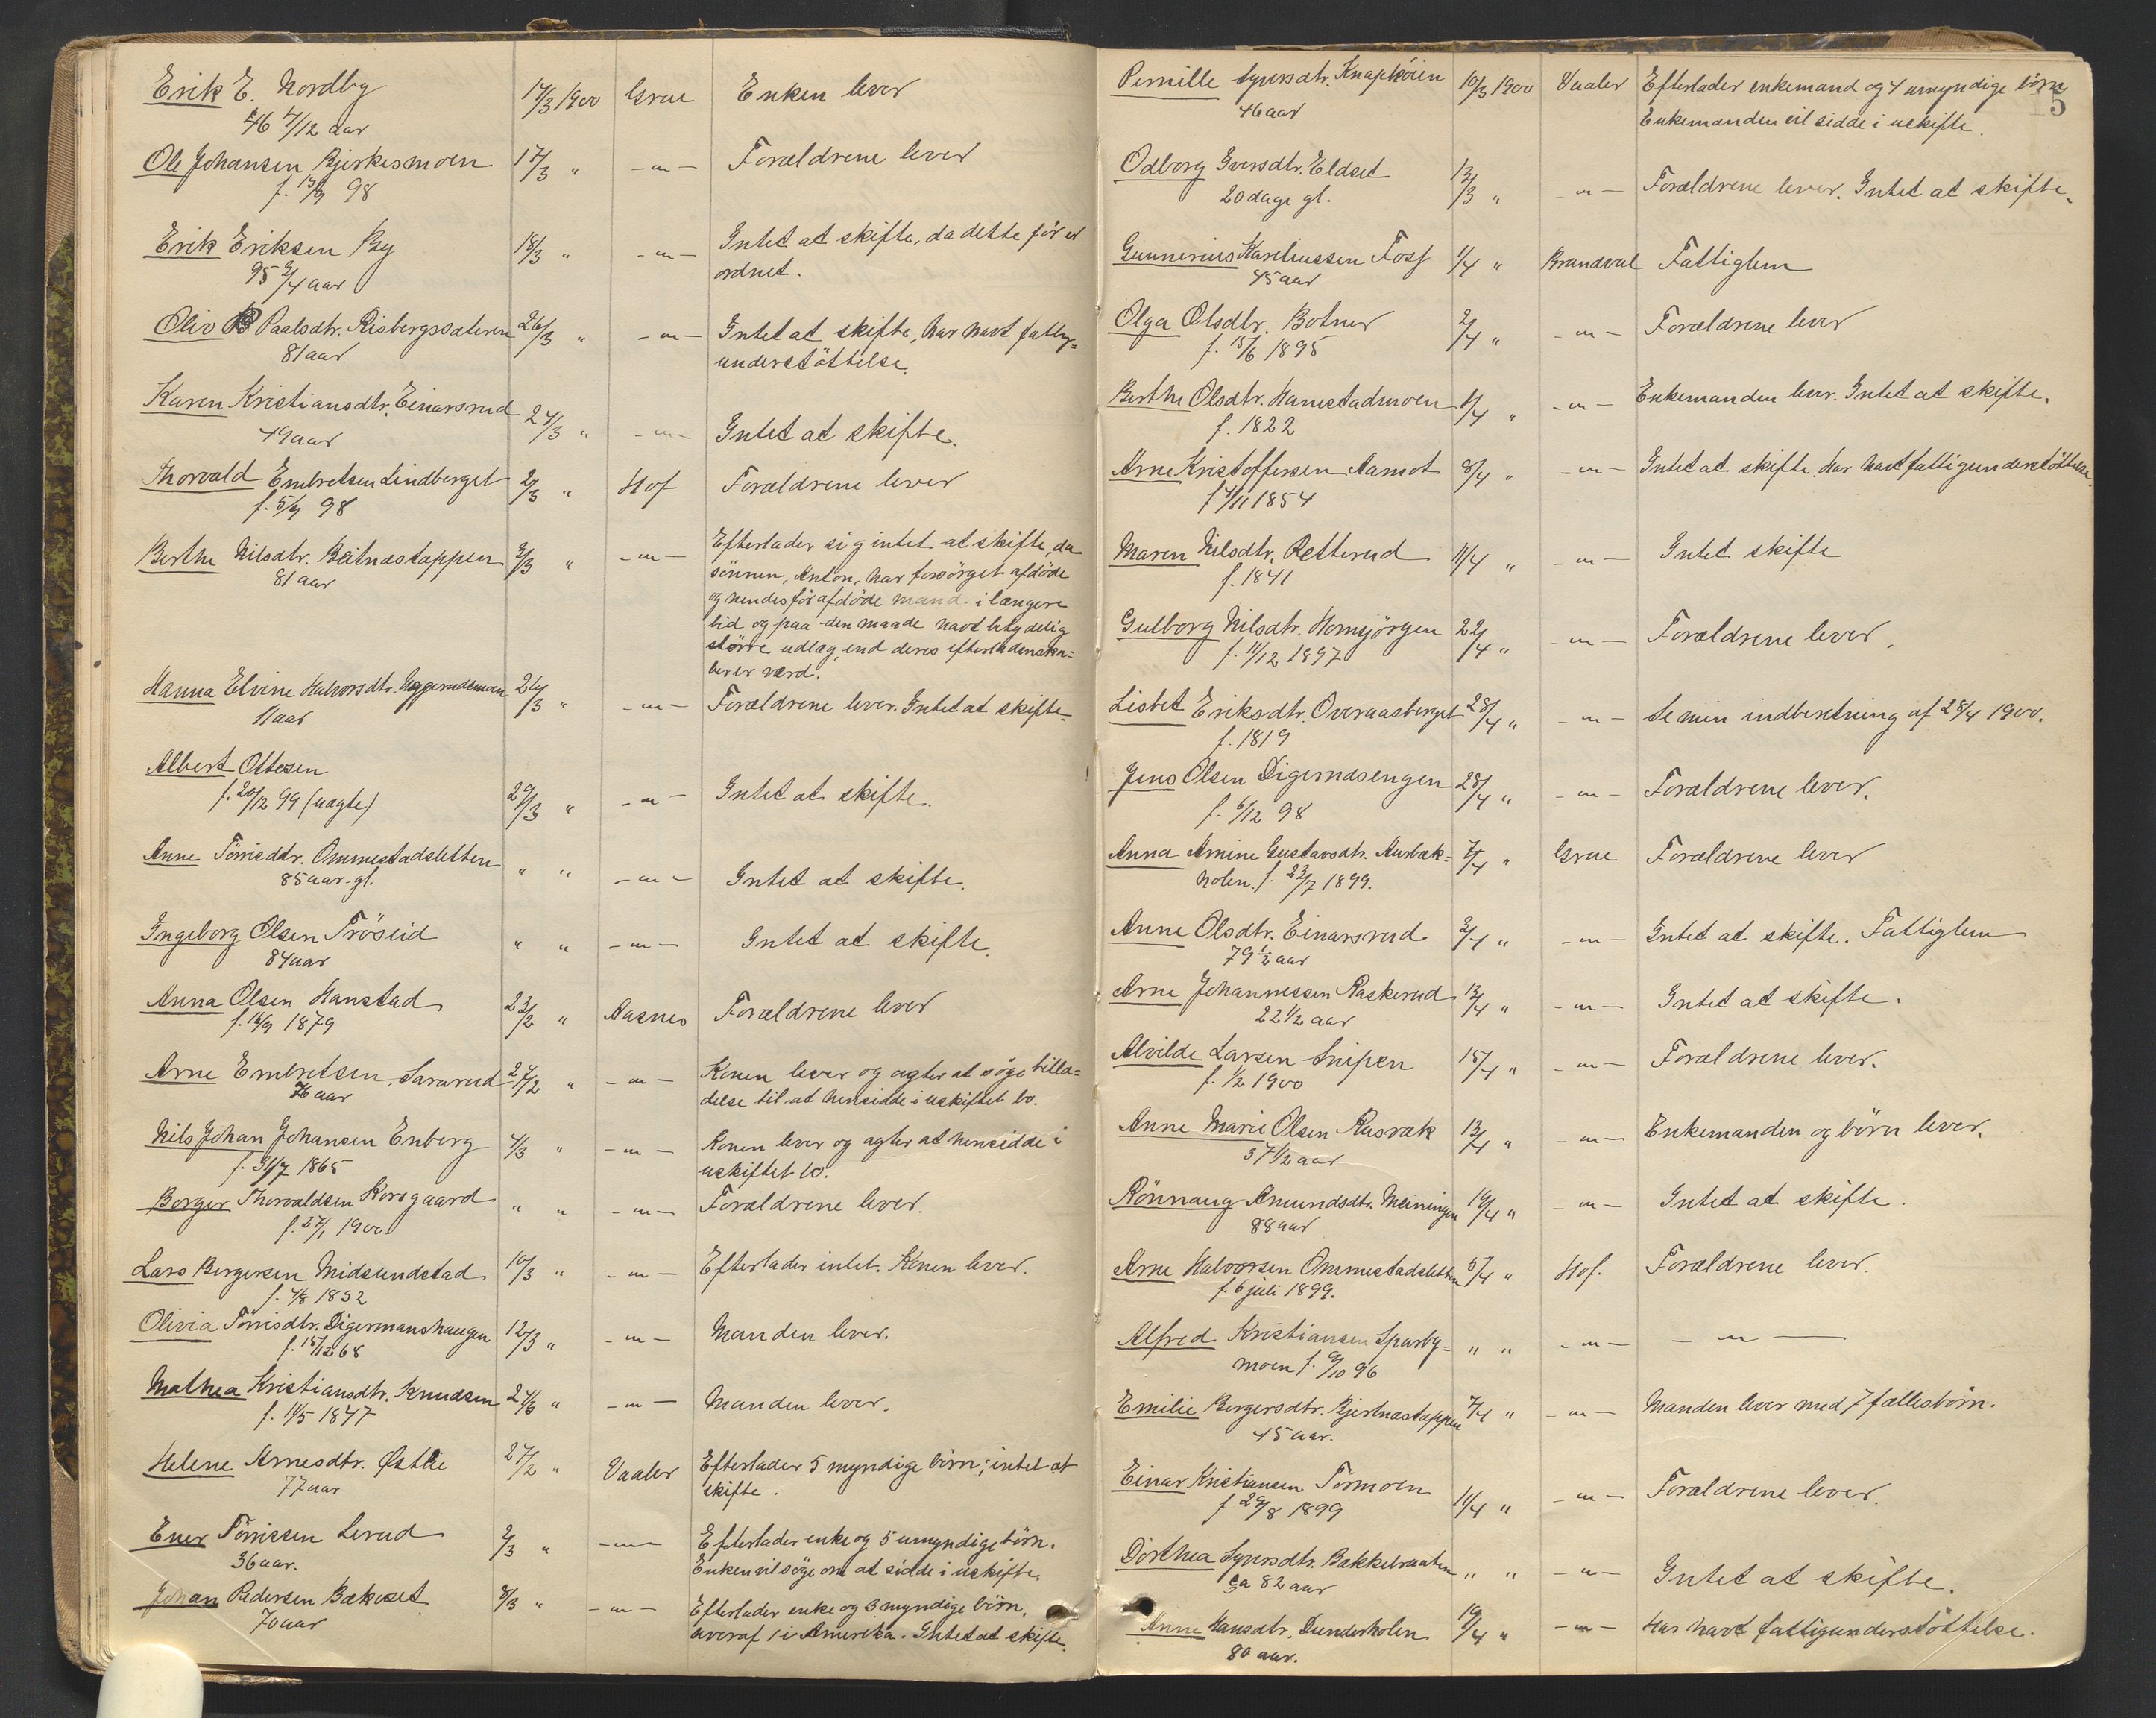 Erik E. Nordby 17/3 1900 Grue Enken lever
46 4/12 aar
Ole Johansen Bjerkesmoen 17/3 " -"- Forældrene lever
f. 13/9 98
Erik Eriksen By 18/3 " -"- Intet at skifte, da dette før er
95 3/4 aar ordnet.
Oliv Paalsdtr. Risbergssæteren 26/3 " -"- Intet at skifte, har havt fattig=
81 aar understøttelse.
Karen Kristiansdtr. Einarsrud 27/3 " -"- Intet at skifte.
49 aar
Thorvald Embretsen Lindberget 2/3 " Hof Forældrene lever
f. 5/9 98
Berthe Nilsdtr. 3/3 " -"- Efterlader sig intet at skifte, da
81 aar sønnen, Anton, har forsørget afdøde
og hendes før afdøde mand i længere
tid og paa den maade havt betydelig
større udlæg, end deres efterladenska-
ber er værd.
Hanna Elvine Halvorsdtr. Haggerudsmoen 26/3 " -"- Forældrene lever. Intet at skifte.
11 aar
Albert Ottesen
f. 20/12 99 (uægte) 29/3 " -"- Intet at skifte.
Anne Törrisdtr. Ommestadsletten " " -"- Intet at skifte.
85 aar gl.
Ingeborg Olsen Tröseid " " -"- Intet at skifte.
84 aar
Anna Olsen Hanstad 23/2 " Aasnes Forældrene lever
f. 16/9 1879
Arne Embretsen Sararud 27/2 " -"- Konen lever og agter at søge tilla=
76 aar delse til at hensidde i uskiftet bo.
Nils Johan Johansen Enberg 4/3 " -"- Konen lever og agter at hensidde i
f. 31/7 1865 uskiftet bo.
Borger Thorvaldsen Korsgaard " " -"- Forældrene lever.
f. 27/1 1900
Lars Bergersen Midsundstad 10/3 " -"- Efterlader intet. Konen lever.
f. 4/8 1832
Olivia Törrisdtr. Digermanshaugen 12/3 " -"- Manden lever.
f. 15/12 68
Mathea Kristiansdtr. Knudsen 24/6 " -"- Manden lever.
f. 11/5 1847
Helene Arnesdtr. Østlie 27/2 " Vaaler Efterlader 5 myndige børn; intet at
77 aar skifte.
Ener Törrissen Lerud 2/3 " -"- Efterlader enke og 5 umyndige børn.
36 aar. Enken vil søge om at sidde i uskifte.
Johan Pedersen Bækoset 8/3 " -"- Efterlader enke og 3 myndige børn,
70 aar hvoraf 1 i Amerika. Intet at skifte.
5
Pernille Syversdtr. Knaphöien 10/3 1900 Vaaler Efterlader enkemand og 4 umyndige børn
46 aar Enkemanden vil sidde i uskifte.
Odborg Iversdtr. Eldset 13/3 " -"- Forældrene lever. Intet at skifte.
20 dage gl.
Gunnerius Kareliussen Foss 1/4 " Brandval Fattiglem
45 aar
Olga Olsdtr. Botner 2/4 " -"- Forældrene lever
f. 15/6 1895
Berthe Olsdtr. Hanestadmoen 6/4 " -"- Enkemanden lever. Intet at skifte.
f. 1822
Arne Kristoffersen Aamot 8/4 " -"- Intet at skifte. Har havt fattigunderstøttelse.
f 4/11 1854
Maren Nilsdtr. Retterud 11/4 " -"- Intet skifte
f. 1841
Gulborg Nilsdtr. Homsjørgen 22/4 " -"- Forældrene lever.
f. 11/12 1897
Lisbet Eriksdtr. Overaasberget 28/4 " -"- Se min indberetning af 28/4 1900.
f. 1819
Jens Olsen Digernæsengen 28/4 " -"- Forældrene lever.
f. 6/12 98
Anna Amine Gustavsdtr. Aurbæk- 7/4 " Grue Forældrene lever
holen. f. 23/7 1899.
Anne Olsdtr. Einarsrud 3/4 " -"- Intet at skifte. Fattiglem
79 1/2 aar
Arne Johannessen Raskerud 13/4 " -"- Intet at skifte.
22 1/2 aar
Alvilde Larsen Snipen 15/4 " -"- Forældrene lever.
f. 1/2 1900
Anne Marie Olsen Rasvæk 13/4 " -"- Enkemanden og børn lever.
37 1/2 aar
Rönnaug Amundsdtr. Meiningen 19/4 " -"- Intet at skifte.
88 aar
Arne Halvorsen Ommestadsletten 5/4 " Hof. Forældrene lever.
f. 6 juli 1899.
Alfred Kristiansen Sparby= " " -"- -"-
moen f. 9/10 96
Emilie Bergersdtr. Bjertnæstappen 7/4 " -"- Manden lever med 7 fællesbørn.
45 aar.
Einar Kristiansen Törmoen 11/4 " -"- Forældrene lever.
f 29/8 1899
Dorthea Syversdtr. Bakkebraaten " " -"- Intet at skifte.
ca 82 aar
Anne Hansdtr. Dunderholen 19/4 " -"- Har havt fattigunderstøttelse.
80 aar.